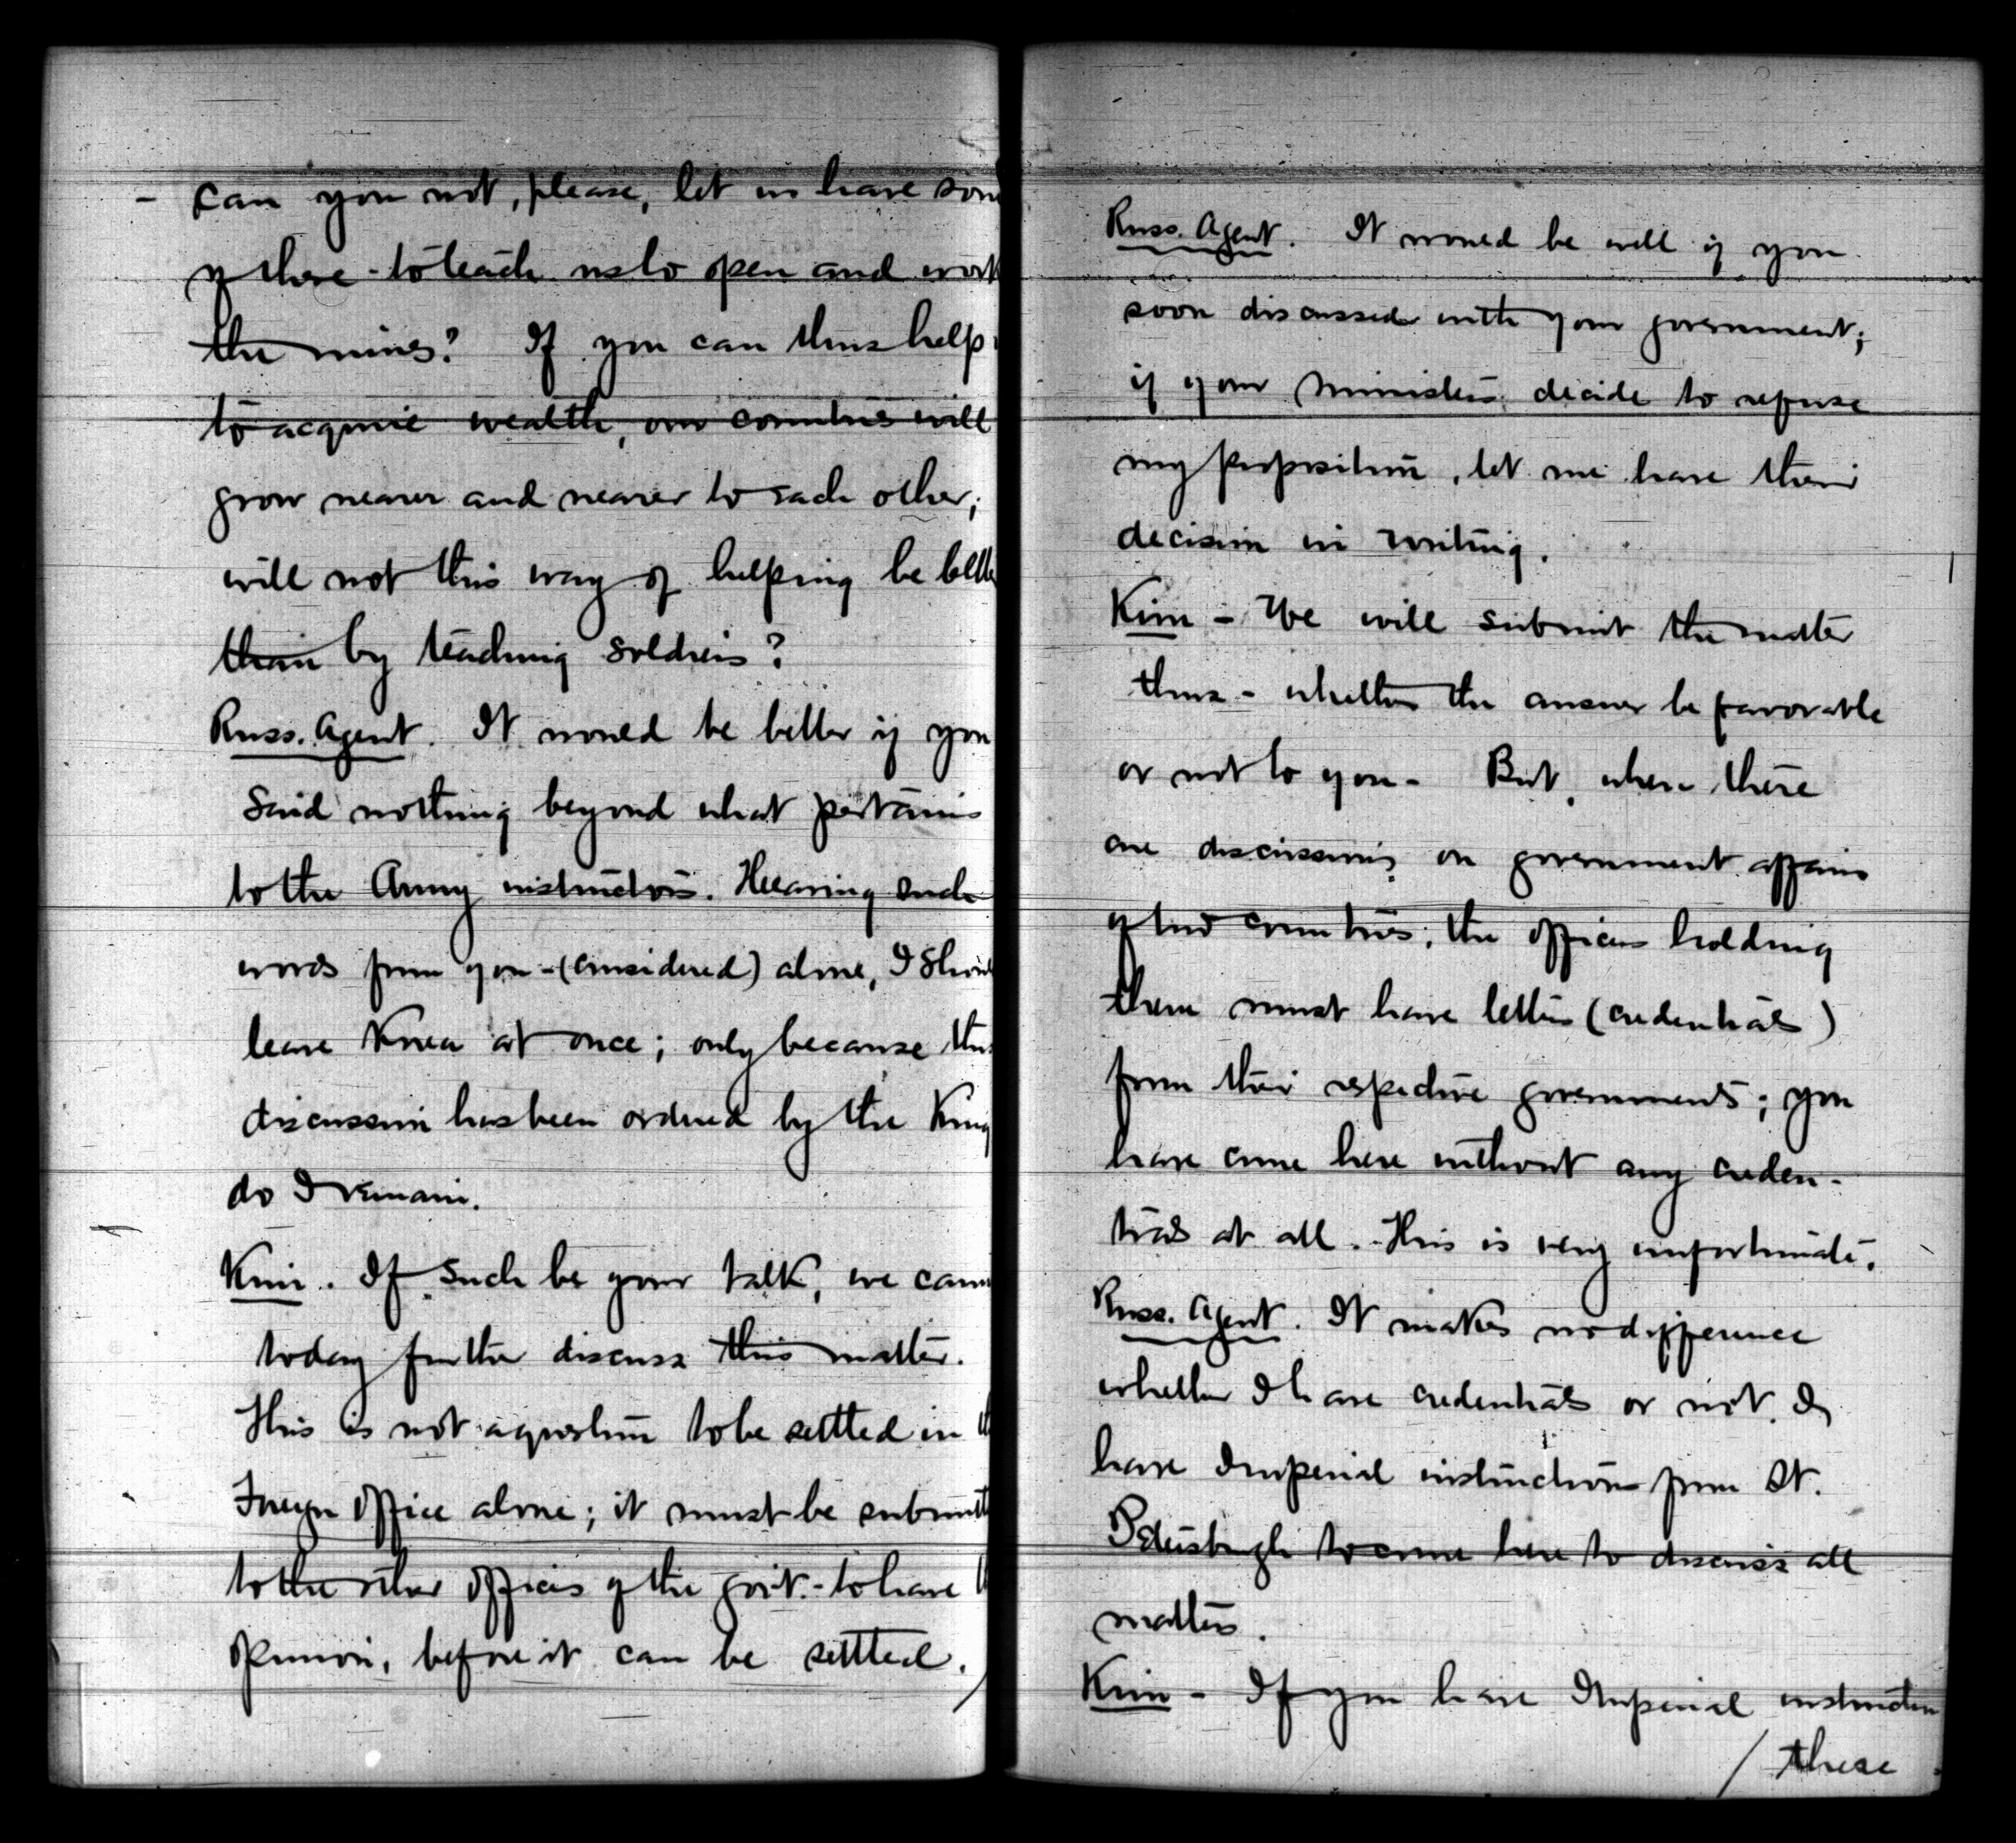 - Can you not, please, let us have som
of these - to teach us to open and work
the mines? If you can thus help
to acquire wealth, our countries will
grow nearer and nearer to each other;
will not this way of helping be bette
than by teaching soldiers?
Russ. Agent. It would be better if you
said nothing beyond what pertains
to the Army instructors. Hearing such
words from you - (considered) alone, I shou
leave Korea at once; only because this
discussion has been ordered by the King
do I remain.
Kim. If such be your talk, we cann
today further discuss this matter.
This is not a question to be settled in th
Foreign Office alone; it must be submitt
to the other officers of the govt. - to have
opinion, before it can be settled.
Russ. Agent. It would be well if you
soon discussed with your government;
if your ministers decide to refuse
my proposition, let me have their
decision in writing.
Kim - We will submit the matter
thus - whether the answer be favorable
or not to you - But, when there
are discussions on government affairs
of two countries, the officers holding
them must have letters (credentials)
from their respective governments; you
have come here without any creden-
tials at all. This is very unfortunate.
Russ. Agent. It makes no difference
whether I have credentials or not. I
have Imperial instructions from St.
Petersburgh to come here to discuss all
matters.
Kim - If you have Imperial instruction
/ these